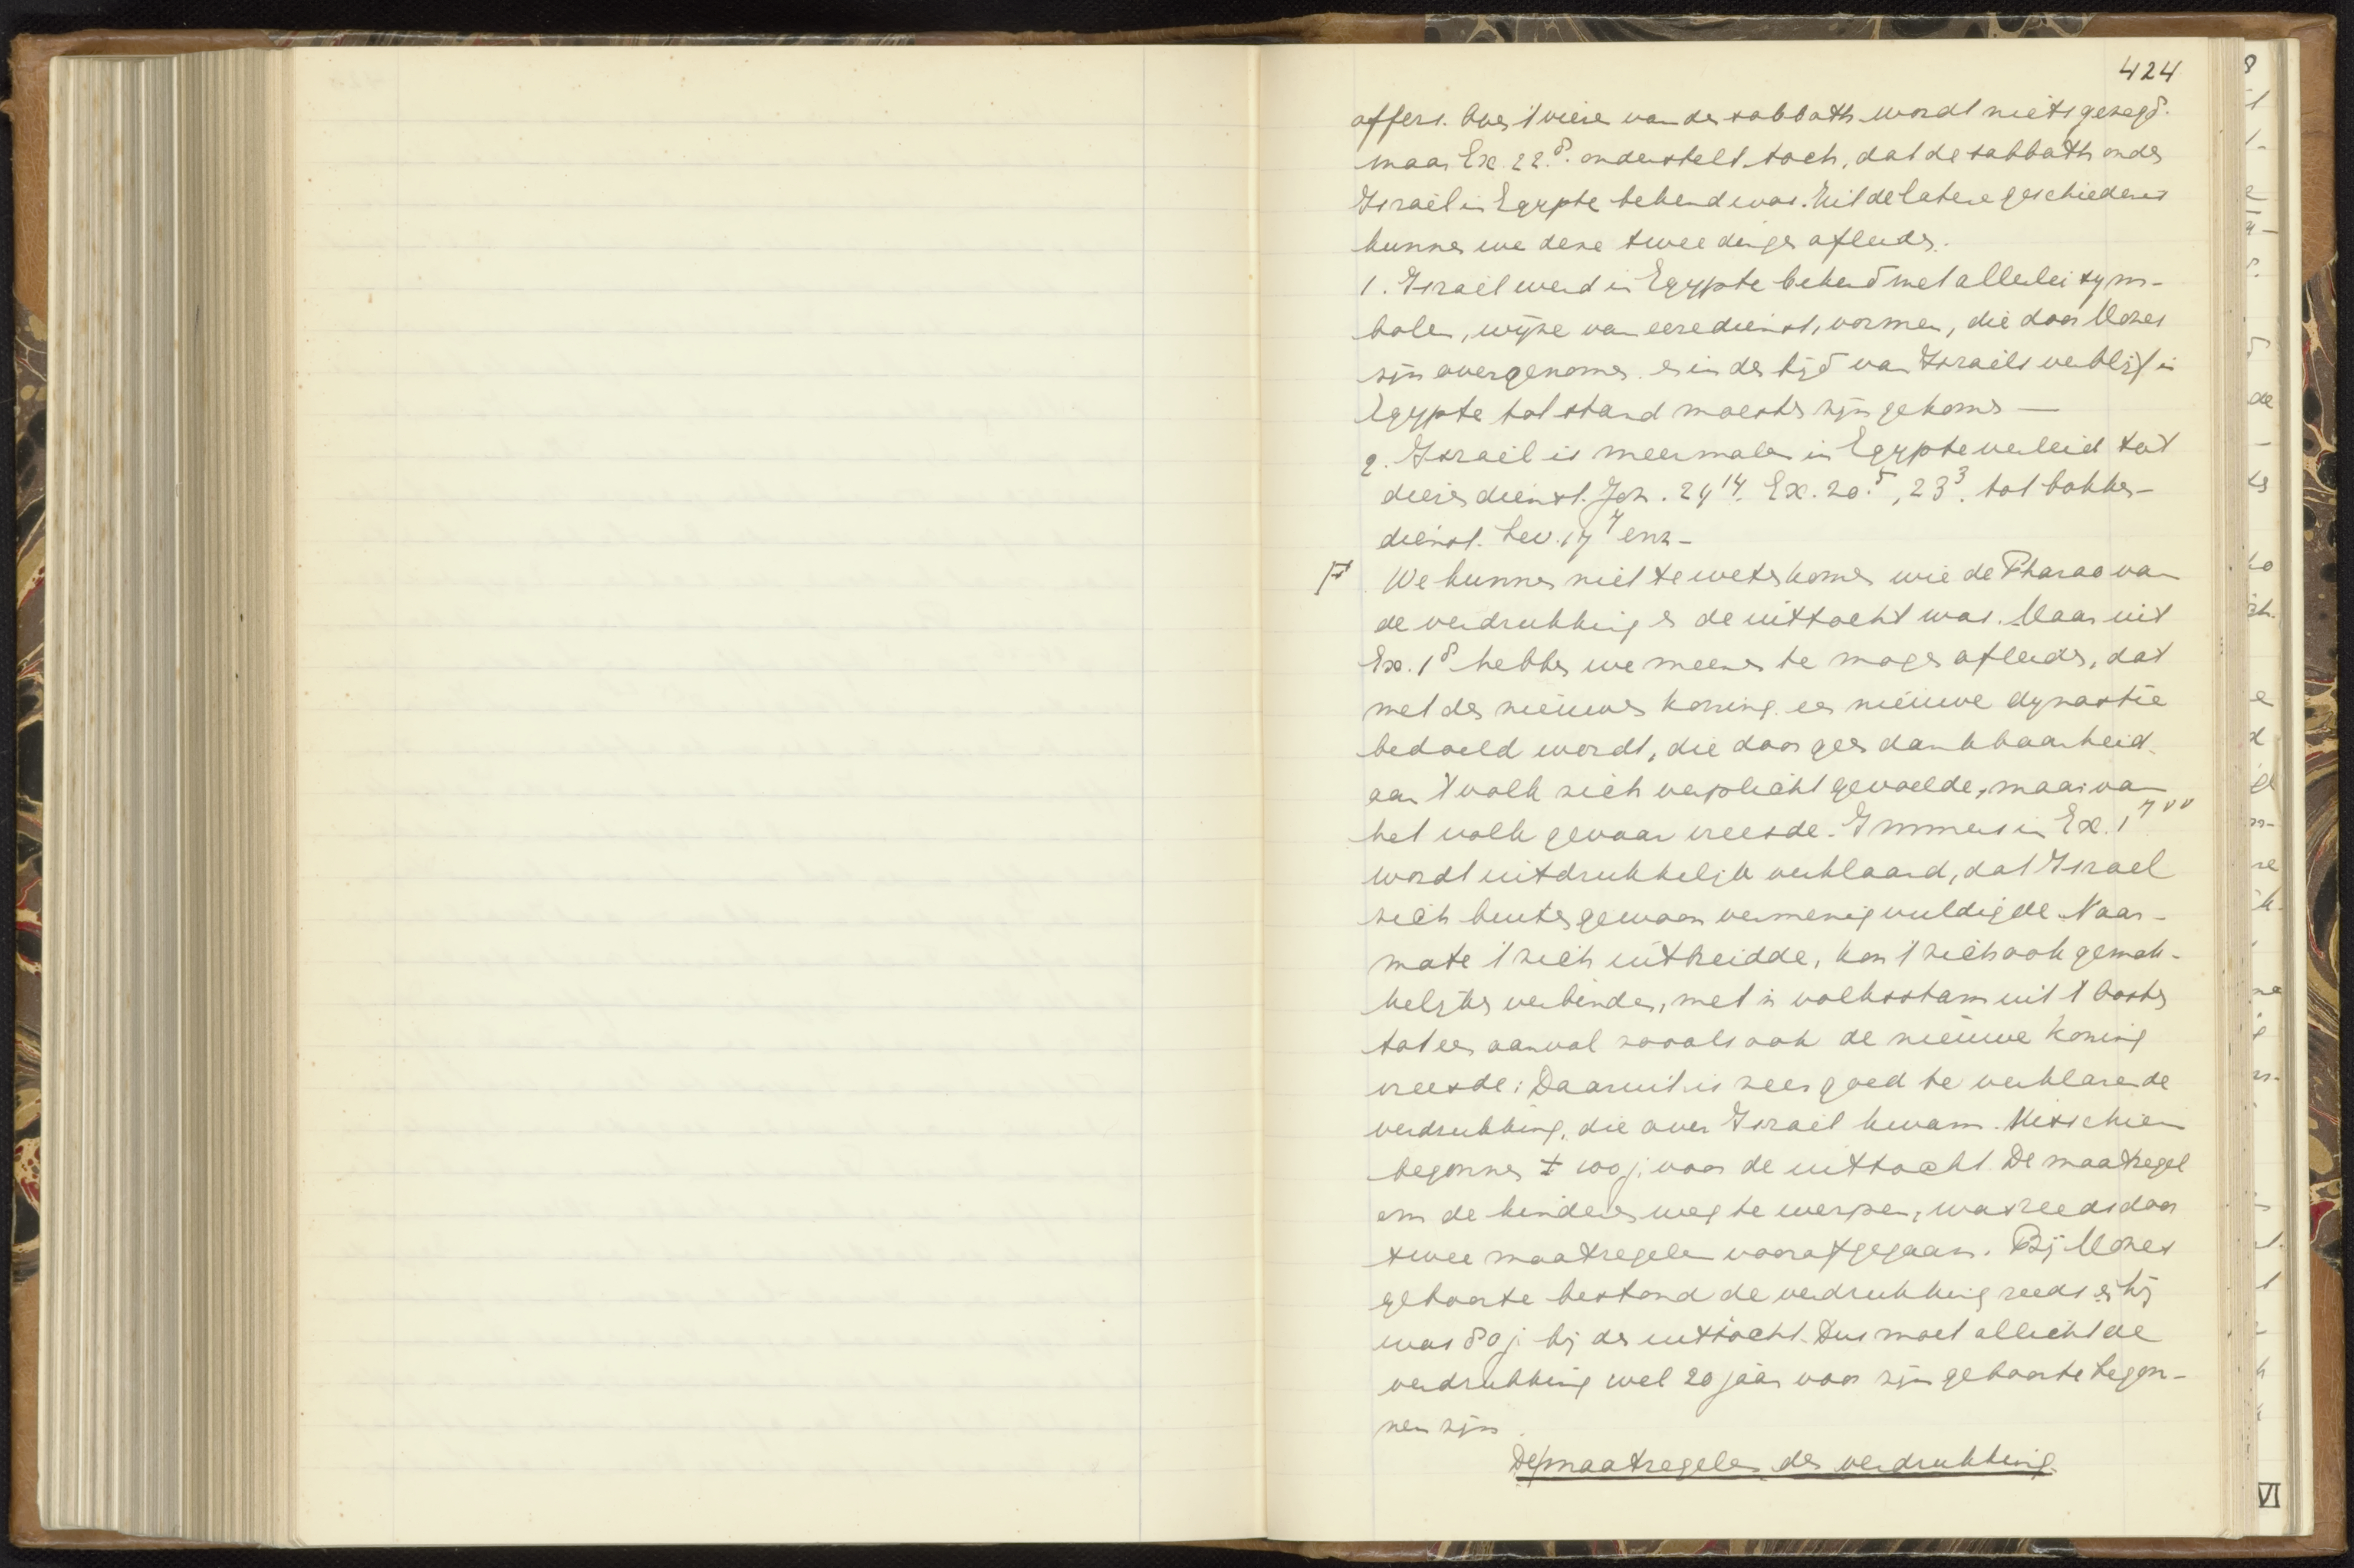 424
offers. Over 't vieren van den sabbath wordt niets gezegd.
maar Ex. 22 8. onderstelt toch, dat de sabbath onder
Israël in Egypte bekend was. Uit de latere geschiedenis
kunnen we deze twee dingen afleiden.
1. Israël werd in Egypte bekend met allerlei sym-
bolen, wijze van eeredienst, vormen, die door Mozes
zijn overgenomen en in den tijd van Israëls verblijf in
Egypte tot stand moesten zijn gekomen —
2. Israël is meermalen in Egypte verleid tot
dierendienst. Joz. 24 14. Ex. 20.5, 23 3. tot bokken-
dienst. Lev. 17 7 enz -
We kunnen niet te weten komen wie de Pharao van
de verdrukking en de uittocht was. Maar uit
Ex. 1 8 hebben we meenen te mogen afleiden, dat
met den nieuwen koning een nieuwe dynastie
bedoeld wordt, die door geen dankbaarheid
aan 't volk zich verplicht gevoelde, maar van
het volk gevaar vreesde. Immers in Ex. 1 7 vv
wordt uitdrukkelijk verklaard, dat Israel
zich buitengewoon vermenigvuldigde. Naar-
mate 't zich uitbreidde, kon 't zich ook gemak-
kelijker verbinden, met 'n volksstam uit 't Oosten
tot een aanval zooals ook de nieuwe koning
vreesde: Daaruit is zeer goed te verklaren de
verdrukking, die over Israël kwam. Misschien
begonnen ± 100 j. voor de uittocht De maatregel
om de kinderen weg te werpen, was reeds door
twee maatregelen voorafgegaan. Bij Mozes
geboorte bestond de verdrukking reeds en hij
was 80 j. bij den uittocht. Dus moet allicht de
verdrukking wel 20 jaar voor zijn geboorte begon-
nen zijn.
De maatregelen der verdrukking.
VI